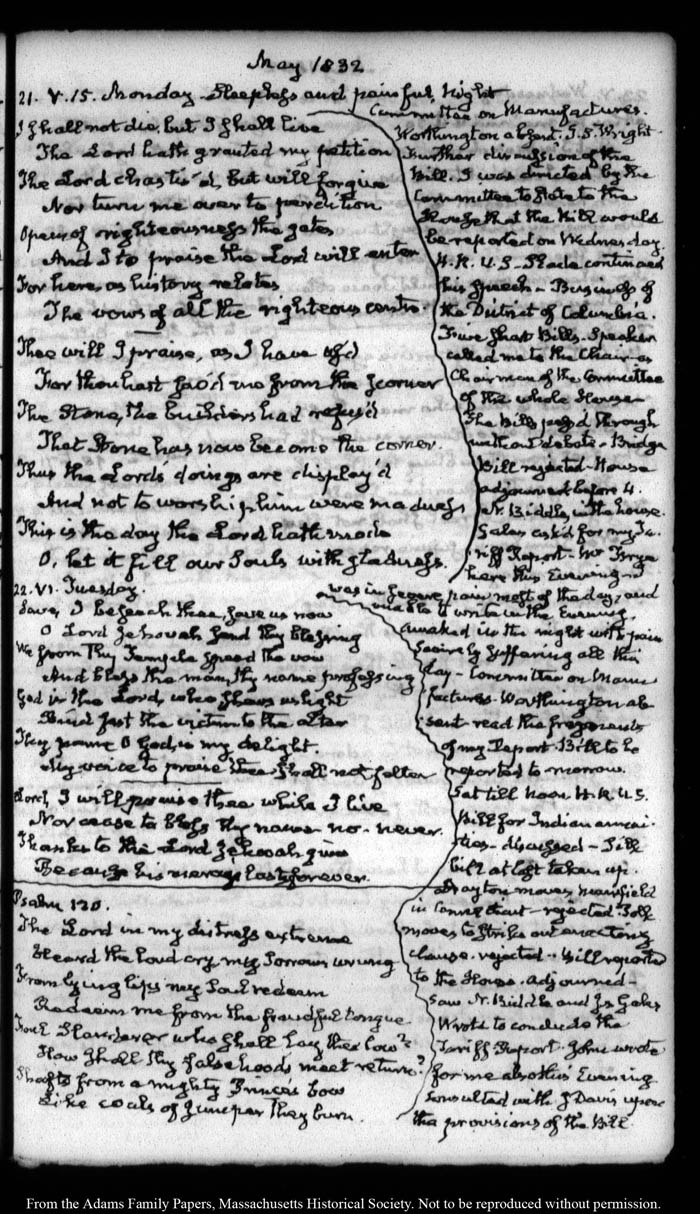 May 1832
21. V.15. Monday. Sleepless and painful Night
I shall not die, but I shall live
The Lord hath granted my petition
The Lord chastis'd, but will forgive
Nor turn me over to perdition
Open of righteousness the gates
And I to praise the Lord will enter
For here, as history relates
The vows of all the righteous centre.
Thee will I praise, as I have
For thou hast me from the scorner
The Stone, the builders had refus'd
That Stone has now become the corner.
Thus the Lord's doings are display'd
And not to worship him were madness
This is the day the Lord hath made
O, let it fill our Souls with gladness.
Committee on Manufactures.
Worthington absent. J. S. Wright
Further discussion of the
Bill. I was directed by the
Committee to state to the
House that the Bill would
be reported on Wednesday.
H. R. U. S. Slade continued
his speech – Business of
the District of Columbia.
Five short Bills. Speaker
called me to the Chair as
Chairman of the Committee
of the whole House
The Bills pass'd through
without debate. Bridge
Bill rejected. House
adjourned before 4.
N. Biddle in the house.
Gales ask'd for my Ta-
riff Report. Mr Frye
here this Evening. I
was in severe pain most of the day, and
unable to write in the Evening.
22. VI. Tuesday.
Save, I beseech thee, save us now
O Lord Jehovah send thy blessing
We from Thy Temple spread the vow
And bless the man, thy name professing
God is the Lord, who shews us light
Bind fast the victim to the altar
Thy name O God, is my delight.
My voice to praise thee shall not falter
Lord, I will praise thee while I live
Nor cease to bless thy name – no – never.
Thanks to the Lord Jehovah give
Because his mercy lasts forever.
Psalm 120.
The Lord in my distress extreme
Heard the loud cry my Sorrows wrung
From lying lips my Soul redeem
Redeem me from the fraudful tongue
Foul Slanderer who shall lay thee low?
How shall thy falsehoods meet return?
Shafts from a mighty Prince's bow
Like coals of Juniper they burn.
Awaked in the night with pain
Severely suffering all this
day – Committee on Manu-
factures. Worthington ab-
sent. read the fragments
of my Report. Bill to be
reported to morrow.
Sat till Noon H. R. U. S.
Bill for Indian annui-
ties – discussed – Till
bill at last taken up.
Drayton moves Mansfield
in Connecticut – rejected Polk
moves to strike out enacting
clause. rejected. Bill reported
to the House. Adjourned –
Saw N. Biddle and Js Gales
Wrote to conclude the
Tariff Report. John wrote
for me also this Evening
Consulted with J Davis upon
the provisions of the Bill.
From the Adams Family Papers, Massachusetts Historical Society. Not to be reproduced without permission.